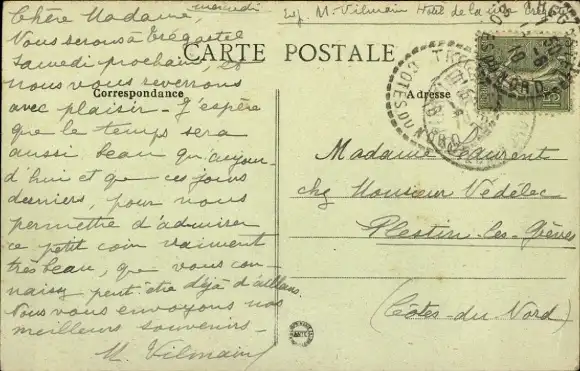 mercredi
Exp. M. Vilmain Hôtel de la
Chère Madame,
Nous serons à Trégastel
samedi prochain, et
nous vous reverrons
avec plaisir - J'espère
que le temps sera
aussi beau qu'aujour-
d'hui et que ces jours
derniers, pour nous
permettre d'admirer
ce petit coin vraiment
très beau, que vous con-
naissez peut être déjà d'ailleurs.
Nous vous envoyons nos
meilleurs souvenirs -
M. Vilmain
CARTE POSTALE
Correspondance
Adresse
CÔTES DU NORD
Madame Laurent
chez Monsieur Védélec
Plestin-les-Grèves
(Côtes-du-Nord)